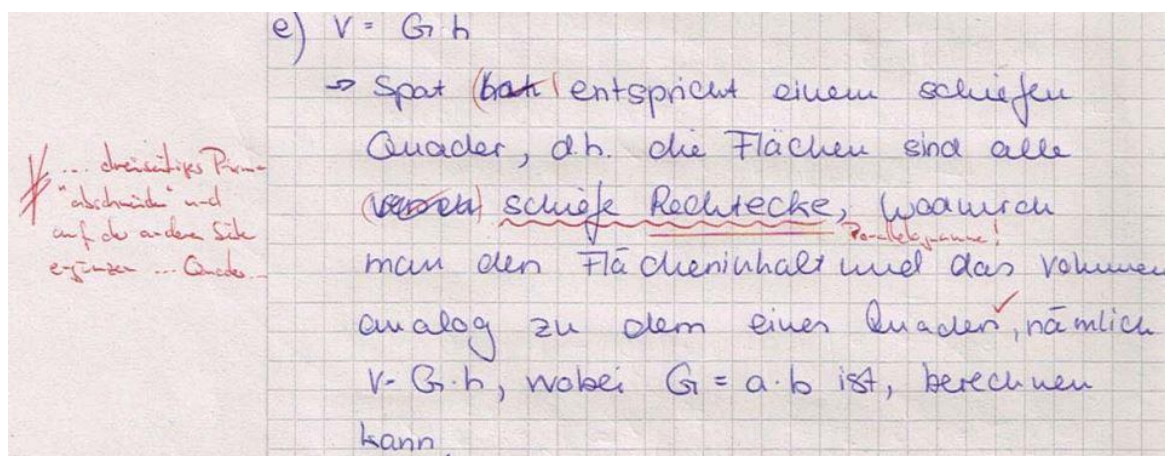 e) V = G·h
→ Spat entspricht einem schiefen
Quader, d.h. die Flächen sind alle
schiefe Rechtecke, wodurch
Parallelogramme!
man den Flächeninhalt und das Volumen
analog zu dem eines Quaders, nämlich
V = G·h, wobei G = a·b ist, berechnen
kann.
... dreiseitiges Prisma
"abschneiden" und
auf der anderen Seite
ergänzen ... Quader ...